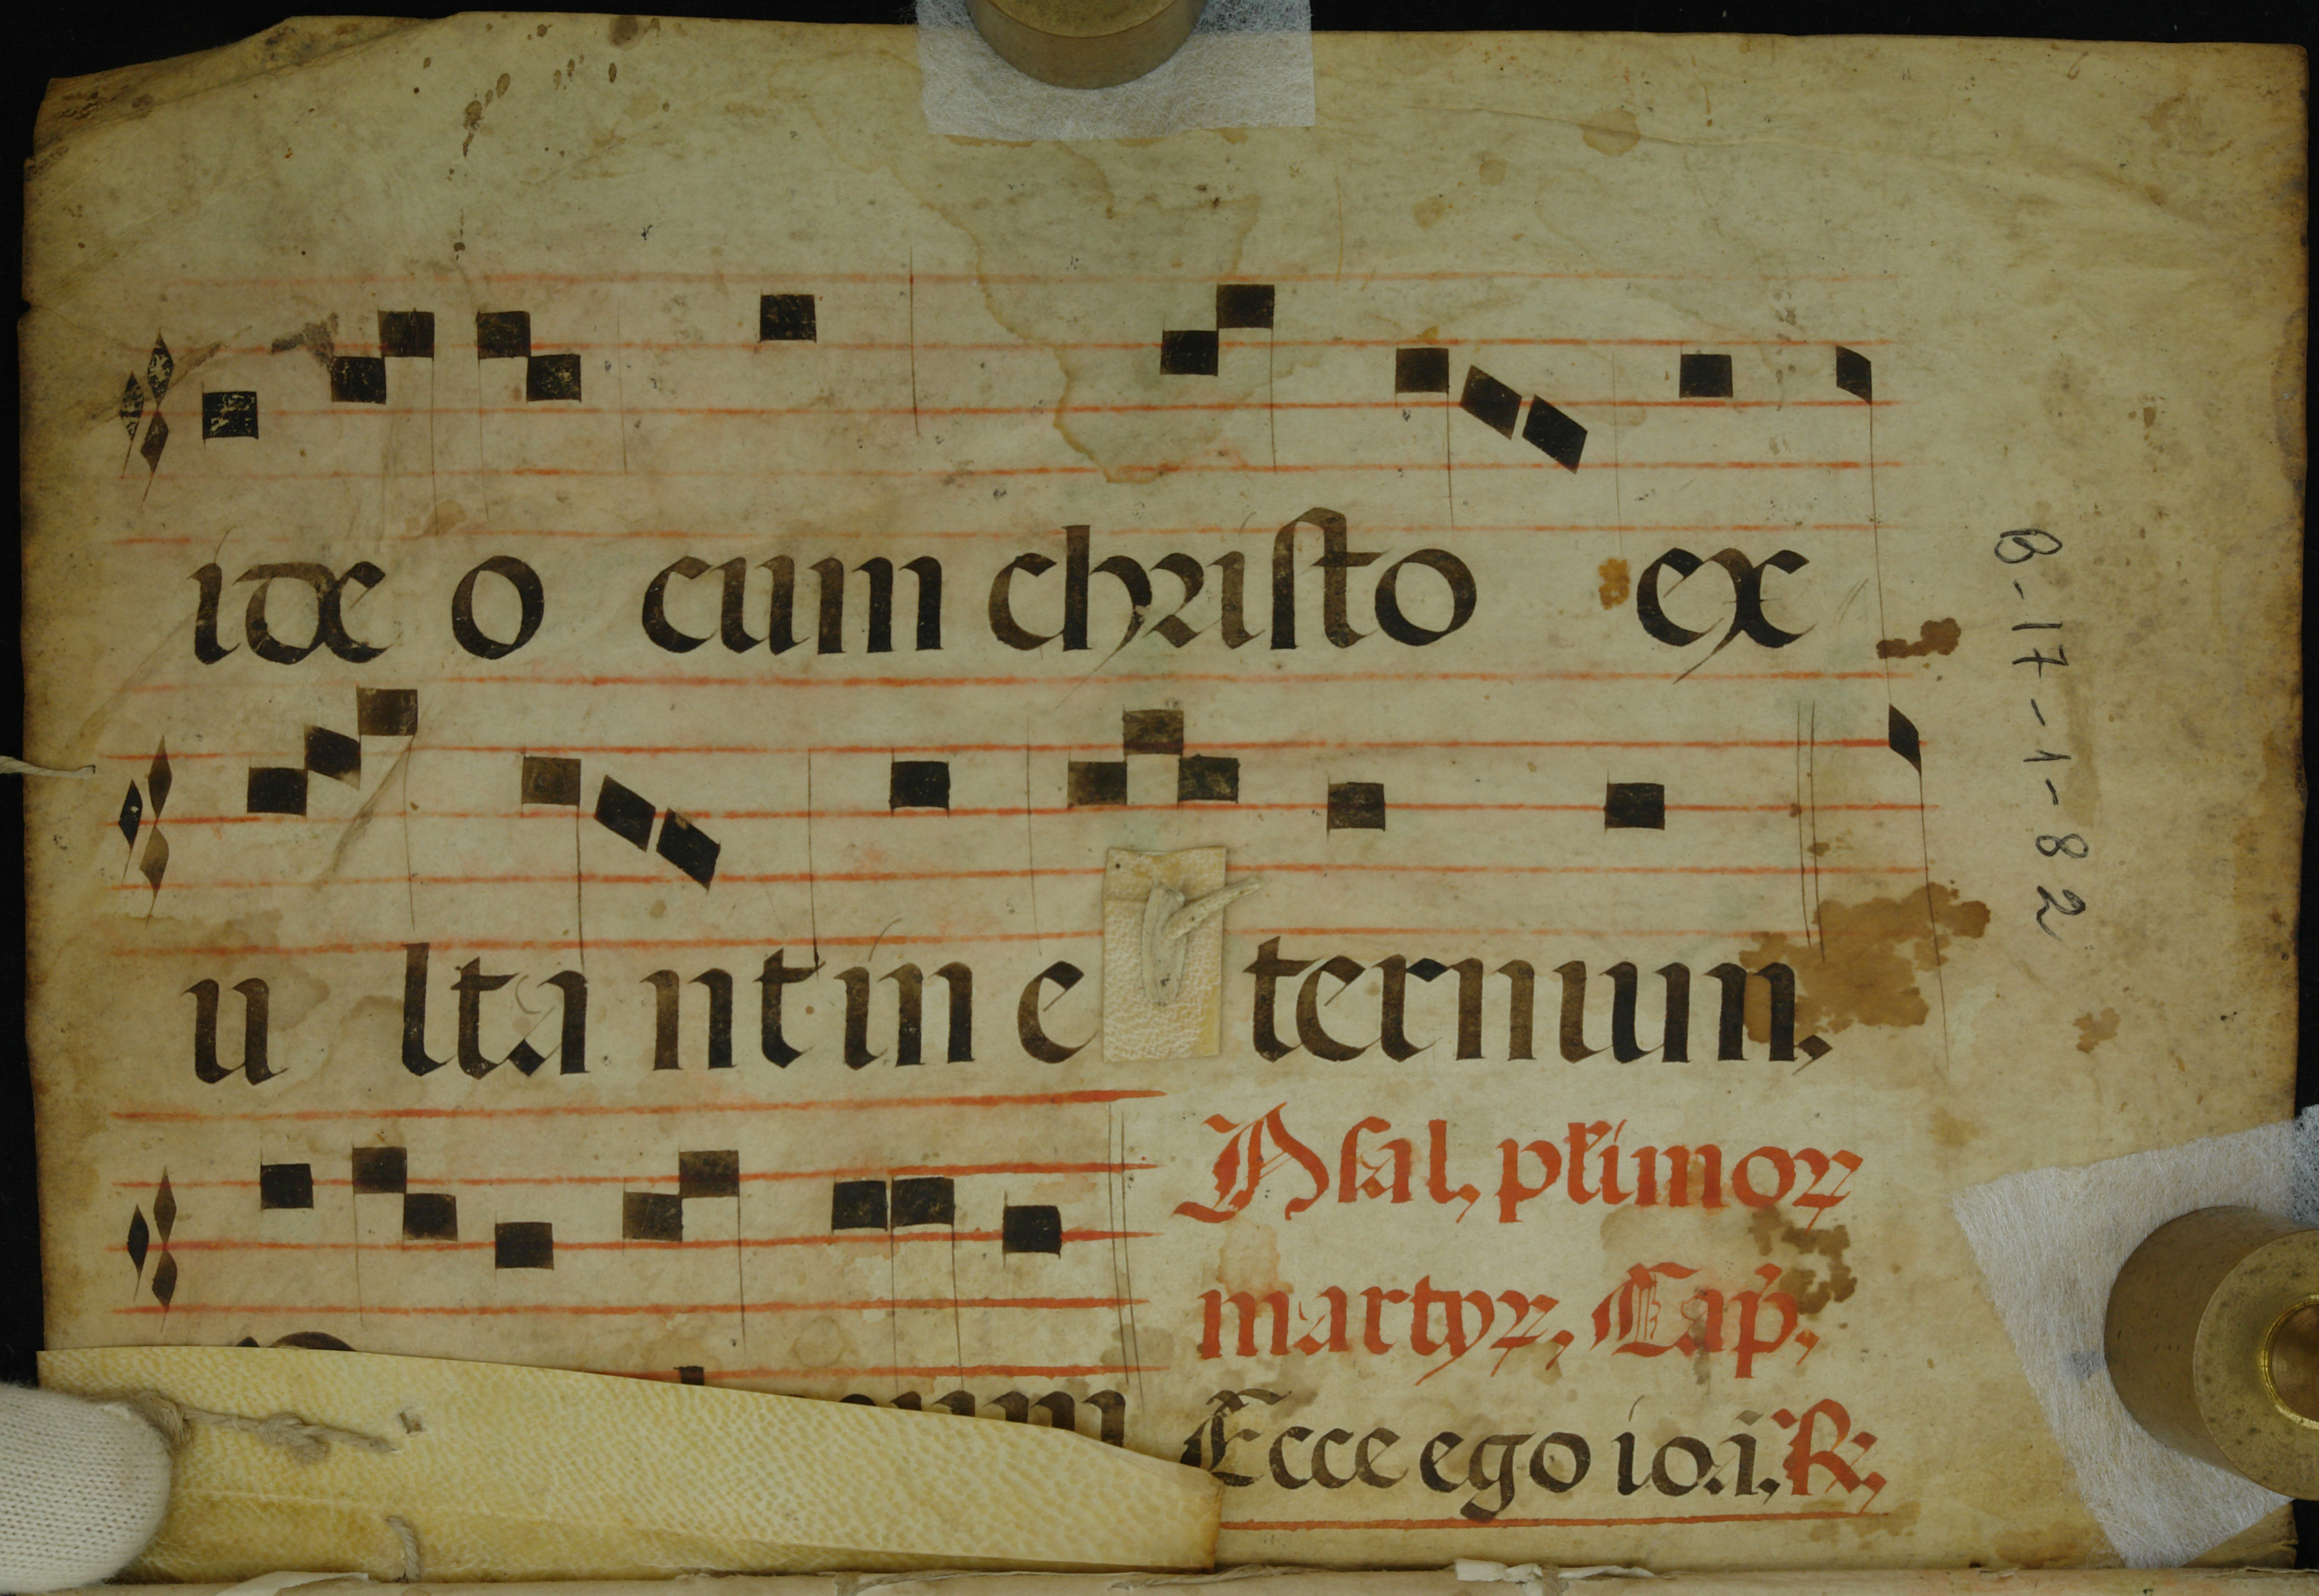 ide o cum christo ex
u lta nt in e ternum,
Psal, plimoꝝ
martyꝝ, Cap̃,
Ecce ego io.i, ℟,
B-17-1-82